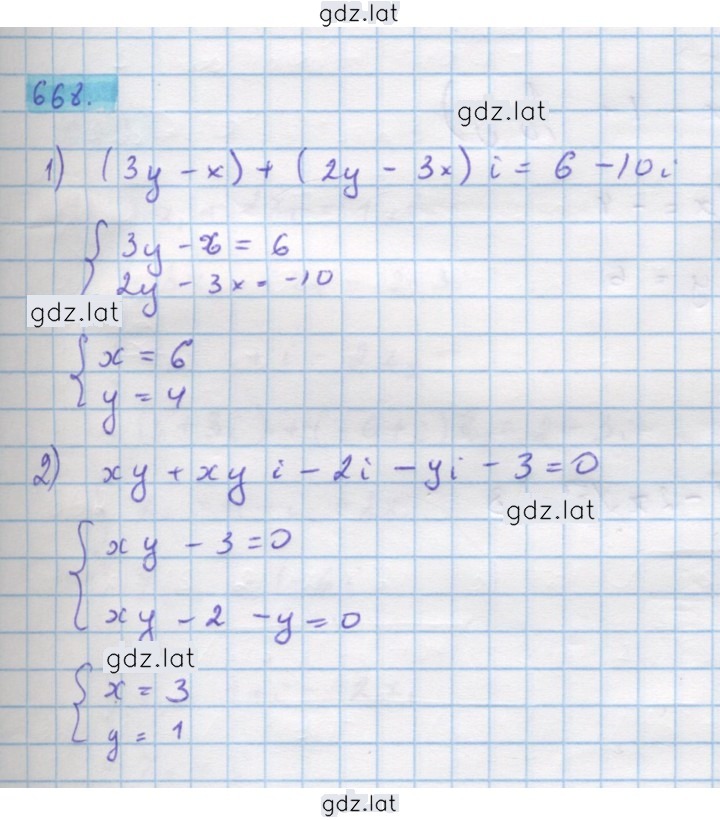 gdz.lat
668.
gdz.lat
1) (3y - x) + (2y - 3x) i = 6 - 10i
{ 3y - x = 6
2y - 3x = -10
gdz.lat
{ x = 6
y = 4
2) xy + xy i - 2i - yi - 3 = 0
gdz.lat
{ xy - 3 = 0
xy - 2 - y = 0
gdz.lat
{ x = 3
y = 1
gdz.lat